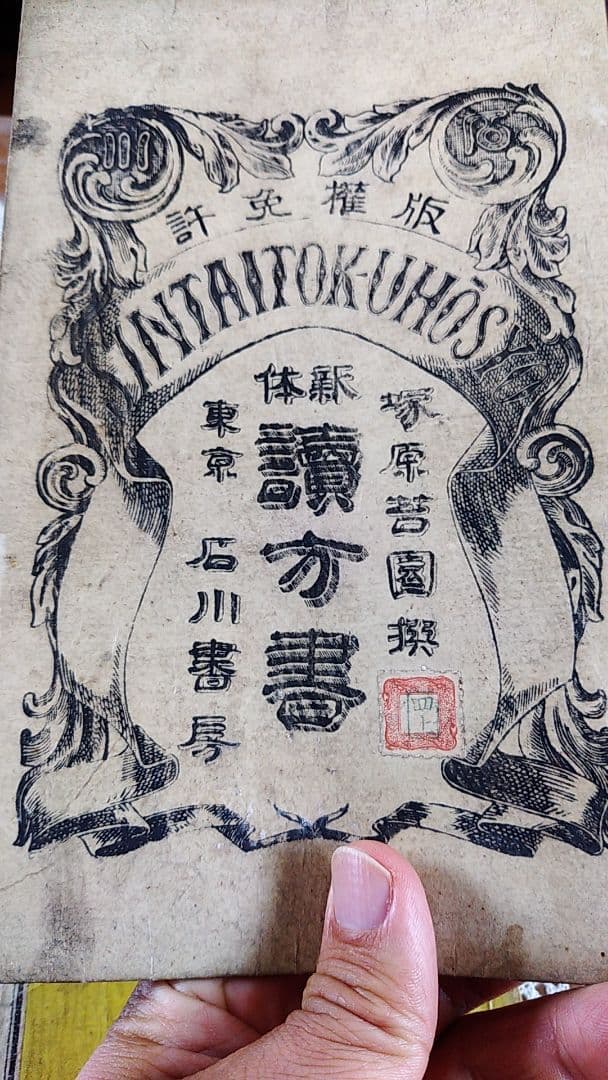 版權免許
INTAITOKUHŌS
塚原苔園撰
四上
新体
讀方書
東京 石川書房